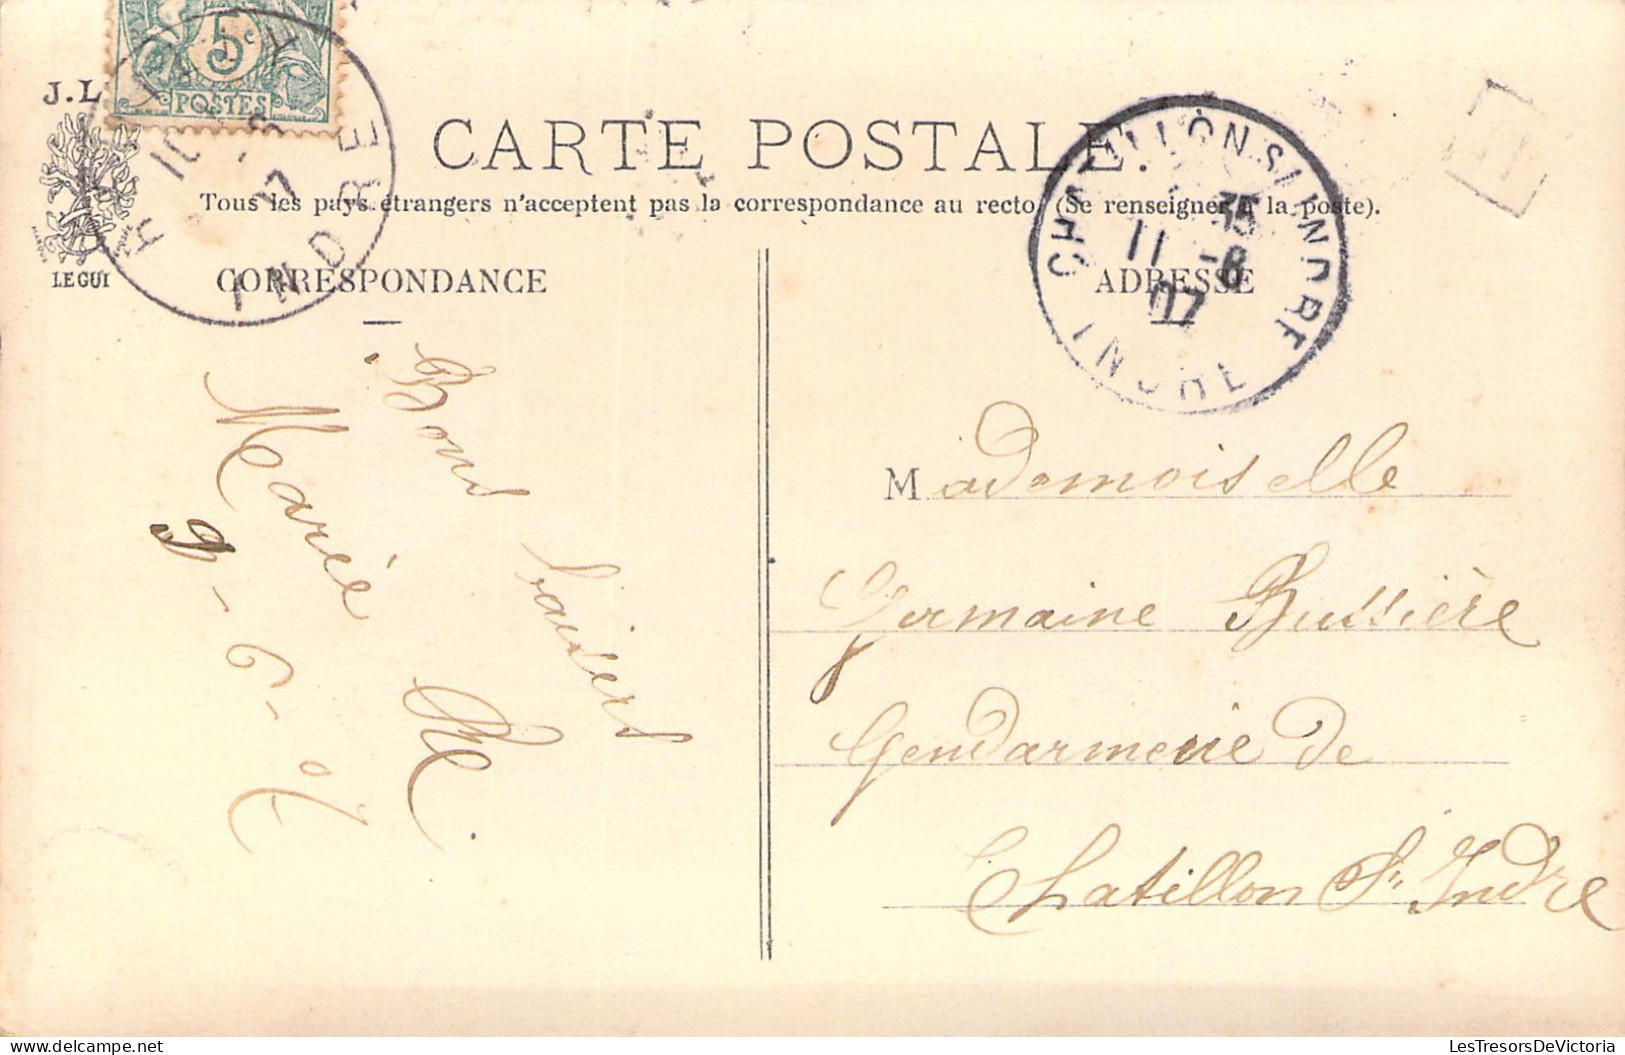 5c
POSTES
J.L
LE GUI
CARTE POSTALE.
Tous les pays étrangers n'acceptent pas la correspondance au recto. (Se renseigner à la poste).
CORRESPONDANCE
ADRESSE
INDRE
CHATILLON S/ INDRE
11 -6
07
INDRE
E
Bons baisers
Marie
9-6-07
Mademoiselle
Germaine Bussière
Gendarmerie de
Chatillon S/ Indre
LesTresorsDeVictoria